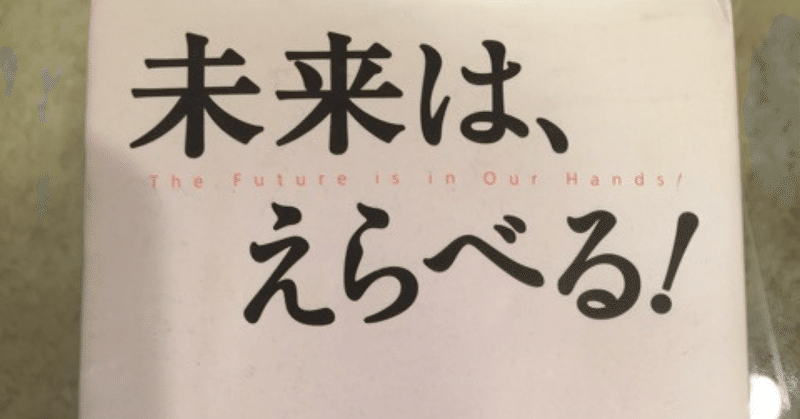 未来は、
The Future is in Our Hands!
えらべる!